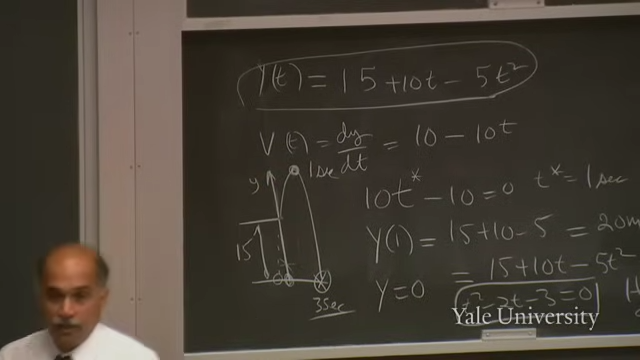 Y(t) = 15 + 10t - 5t²
V(t) = dy/dt = 10 - 10t
1 sec
y
15
3 sec
10t* - 10 = 0 t* = 1 sec
Y(1) = 15 + 10 - 5 = 20m
Y = 0 = 15 + 10t - 5t²
t² - 2t - 3 = 0
Yale University